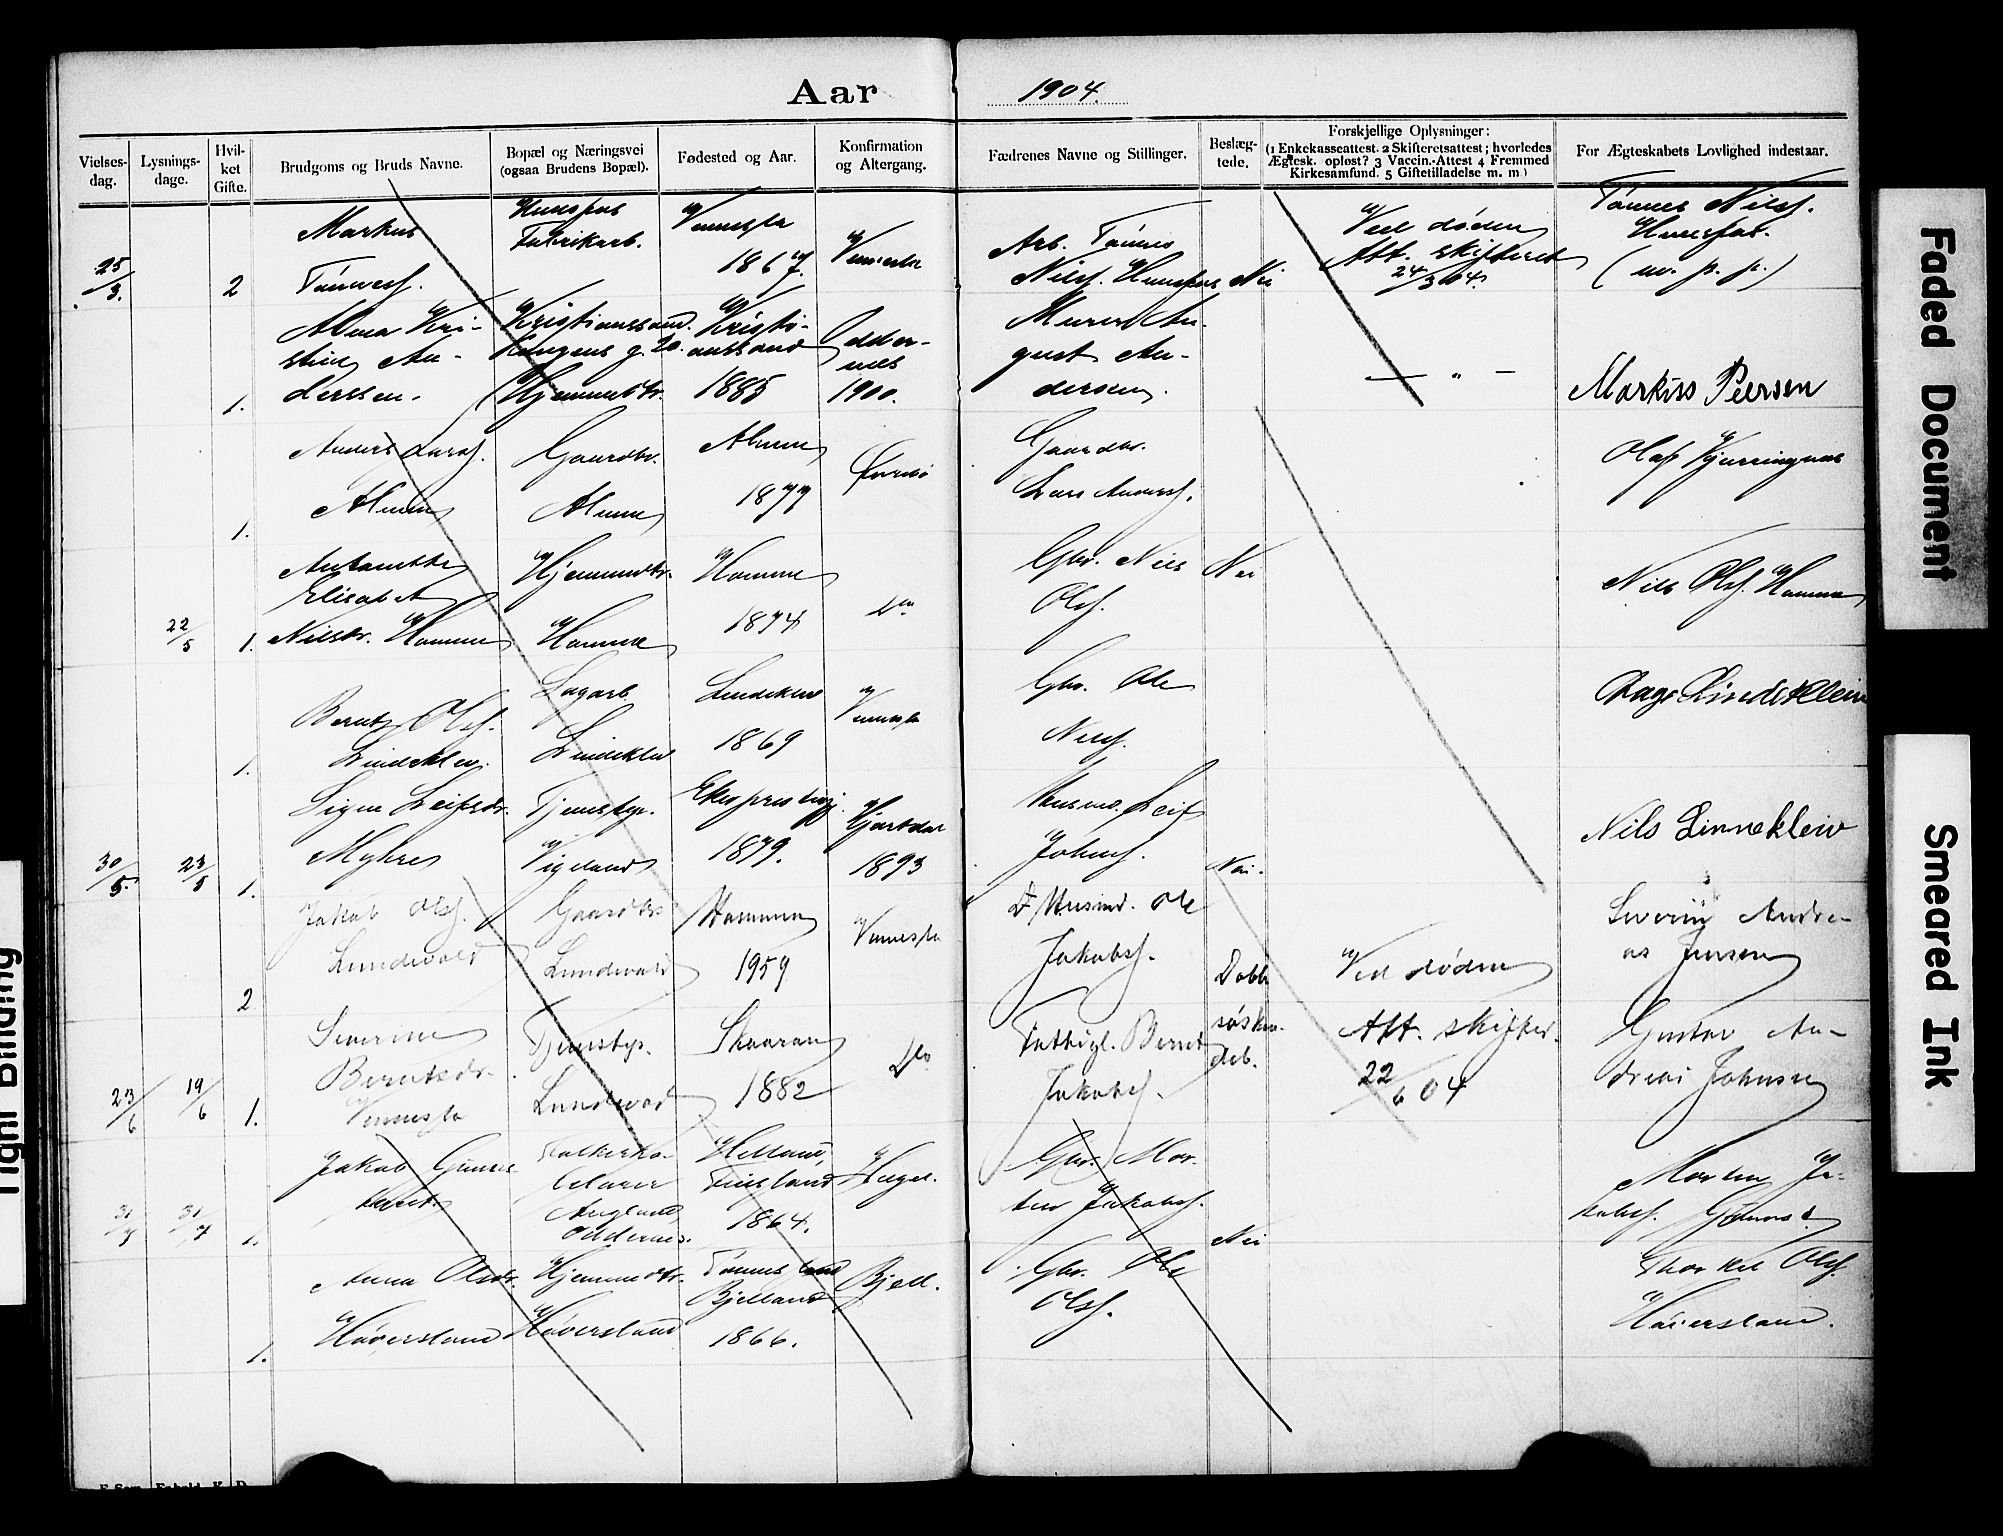 Aar 1904.
Vielses-dag. Lysnings-dage. Hvil-ket Gifte. Brudgoms og Bruds Navne. Bopæl og Næringsvei (ogsaa Brudens Bopæl). Fødested og Aar. Konfirmation og Altergang. Fædrenes Navne og Stillinger. Beslæg-tede. Forskjellige Oplysninger: (1 Enkekasseattest. 2 Skifteretsattest; hvorledes Ægtesk. opløst? 3 Vaccin.-Attest 4 Fremmed Kirkesamfund. 5 Giftetilladelse m. m.) For Ægteskabets Lovlighed indestaar.
25/3. 2
Markus
Tønnesf.
Hunsfos
Fabrikarb.
Vennesla
1867.
Vennesla
Arb. Tønnes
Nilsf. Hunsfos
Nei
Ved døden
Att. skifteret
24/3 04.
Tønnes Nilsf.
Hunsfos.
(m. p. p.)
1.
Alma Kri-
stine An-
derssen.
Kristianssand.
Kongens g. 20.
Hjemmedtr.
Kristi-
anssand
1885
Odder-
nes
1900.
Murer Au-
gust An-
dersen.
— " —
Markus Peersen
1.
Anders Larsf.
Gaardbr.
1877
Gaardbr.
Lars Andersf.
22/5 1.
Antonette
Elisabet
Nilsdr. Homme
Hjemmedtr.
Homme
Homme
1874
do
Gbr. Nils
Olsf.
Nei
Nils Olsf. Homme
1.
Bernt Olsf.
Lindeklev.
Sagarb.
Lindeklev
Lindeklev
1869
Vennesla
Gbr. Ole
Nilsf.
Aage Lindekleiv
30/5. 23/5 1.
Signe Leifsdr.
Myhre
Tjenstep.
Vigeland
1879.
Hjartdal
1893
Husmd. Leif
Johnsf.
Nei.
Nils Linnekleiv
2
Jakob Olsf.
Lundevold
Gaardbr.
Lundevold
Hommen
1959
Vennesla
Husmd. Ole
Jakobsf.
Dobb.
søsken-
deb.
Ved døden
Severin Andre-
as Jensen
23/6 19/6 1.
Severine
Berntsdr.
Vennesla
Tjenstep.
Lundevold
Skaaran
1882
Do
Fattigl. Bernt
Jakobsf.
Att. skifter.
22/6 04
Gustav An-
dreas Johnsen
31/7 31/7 1.
Jakob
Anglund,
Oddernes.
Helland,
Finsland
1864.
Hægel.
Gbr. Mor-
ten Jakobsf.
Nei
Morten Ja-
kobsf.
1.
Anna Olsdr.
Høversland
Hjemmedtr.
Høversland
Bjelland
1866.
Bjell.
Gbr. Ole
Olsf.
Thorkel Olsf.
Høiersland.
Faded Document
Smeared Ink
Tight Binding